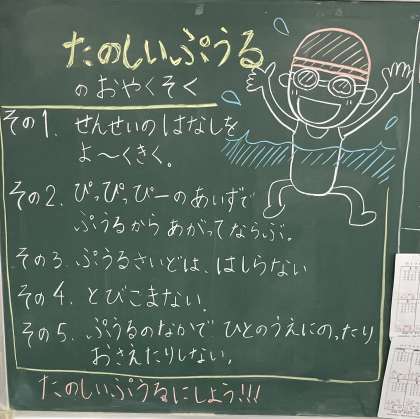 たのしいぷうる
のおやくそく
その1. せんせいのはなしを
よ〜くきく。
その2. ぴっぴっぴーのあいずで
ぷうるからあがってならぶ。
その3. ぷうるさいどは、はしらない
その4. とびこまない。
その5. ぷうるのなかで ひとのうえにのったり
おさえたりしない。
たのしいぷうるにしよう!!!